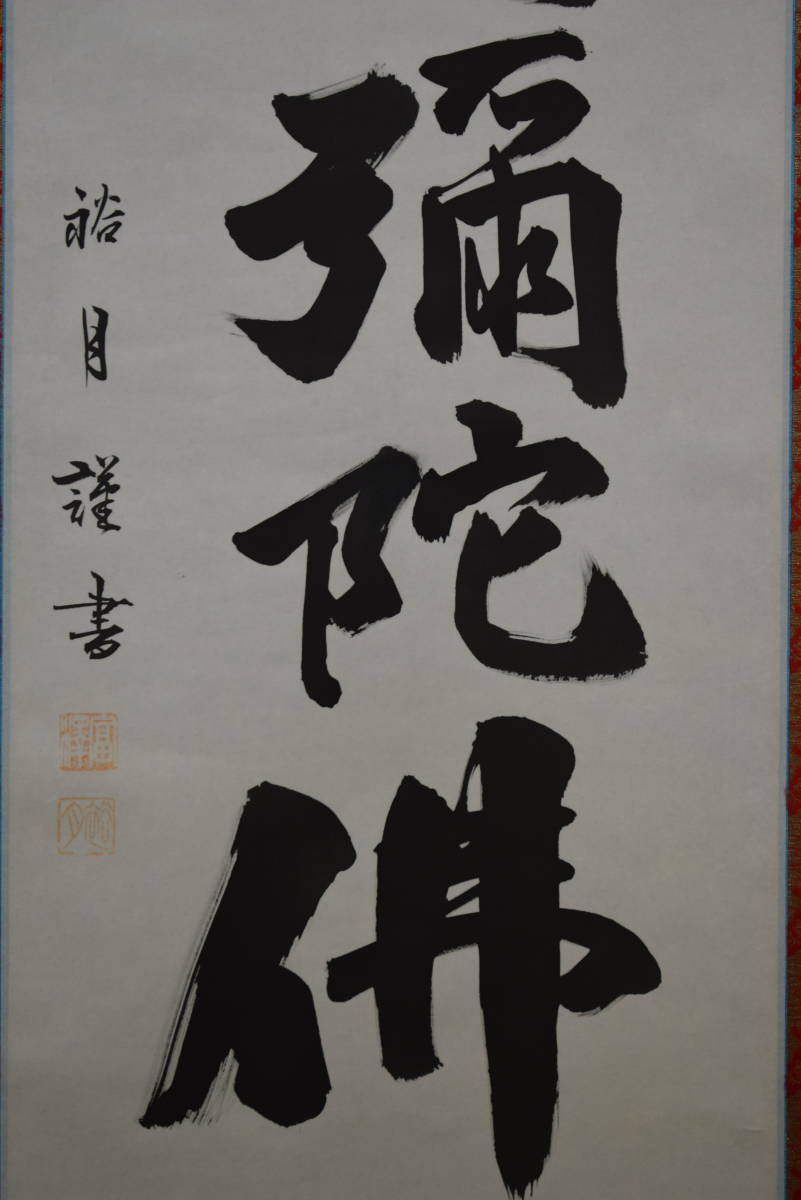 彌陀佛
裕月謹書